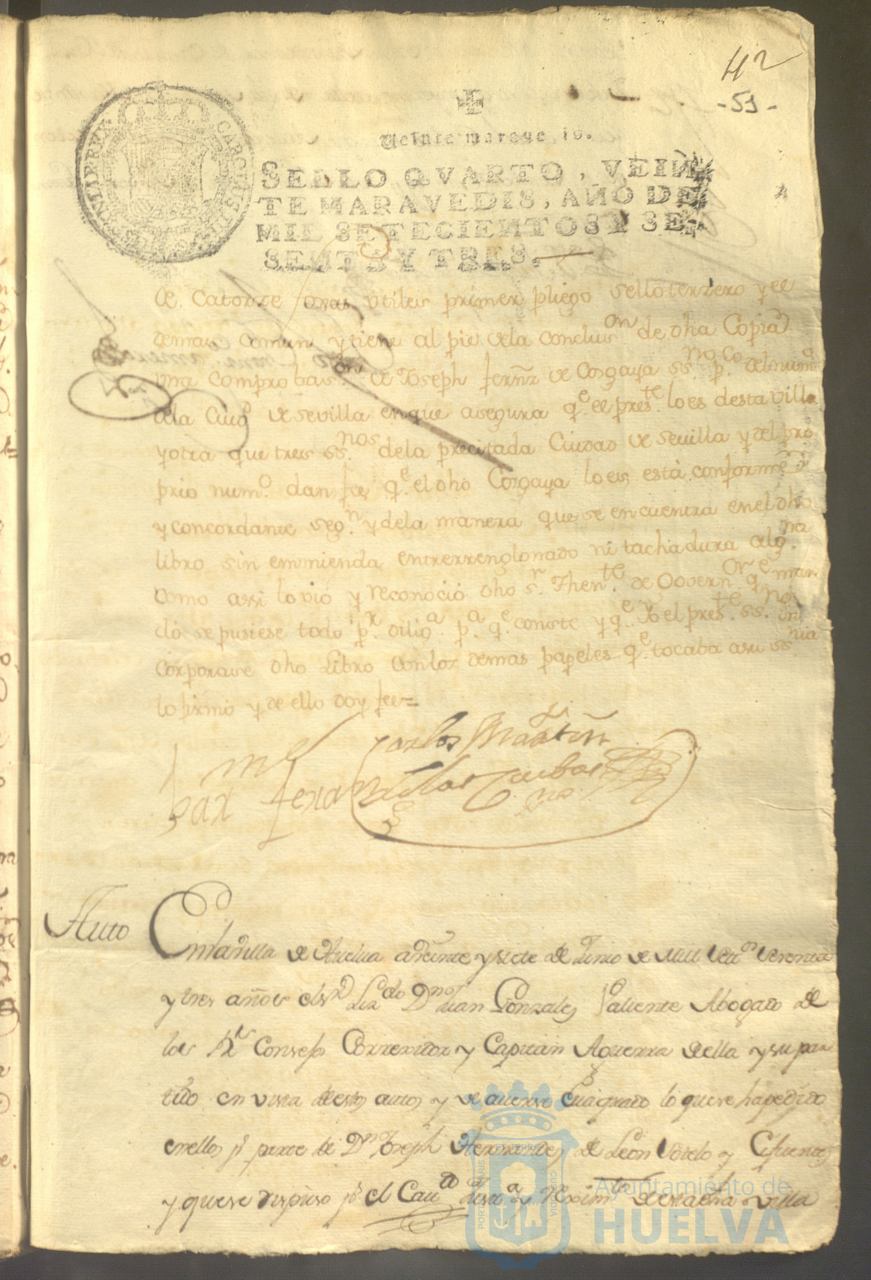 42
-51-
Veinte maravedis.
SELLO QVARTO, VEIN
TE MARAVEDIS, AÑO DE
MIL SETECIENTOS Y SE
SENTA Y TRES.
de Catorze foxas utiles primer pliego sello terzero y el
demas comun y tiene al pie de la conclus.on de dha Copia
una comprobaz.on de Joseph fernz de Cosgaya ss.no p.co del num.o
de la Ciud de Sevilla en que asegura q.e el pres.te lo es desta villa
y otra que tres ss.nos de la precitada Ciudad de Sevilla y del pro
prio num.o dan fee q.e el dho Cosgaya lo es está conforme
y concordante seg.n y de la manera que se encuentra en el dho
libro sin enmienda entrerrenglonado ni tachadura alg.na
como assi lo vió y reconoció dho s.r Then.te de Govern.or q.e man
dó se pusiese todo p.r dilig.a p.a q.e conste y q.e Yo el pres.te ss.no in
corporase dho Libro con los demas papeles q.e tocaba a su ss.nia
lo firmó y de ello doy fee=
Auto En la Villa de Huelva a Veinte y siete de Junio de Mill sett.os sesenta
y tres años el s.r Liz.do D.n Juan Gonzales Valiente Abogado de
los R.s Consejos Corregidor y Capitan Aguerra della y su par
tido en vista destos autos y de averse evaquado lo que se ha pedido
en ellos p.r parte de D.n Joseph Hernandes de Leon Sotelo y Cifuentes
y que se dispuso p.r el Cav.do Just.a y Reximt.o de esta dha villa
Ayuntamiento de
HUELVA